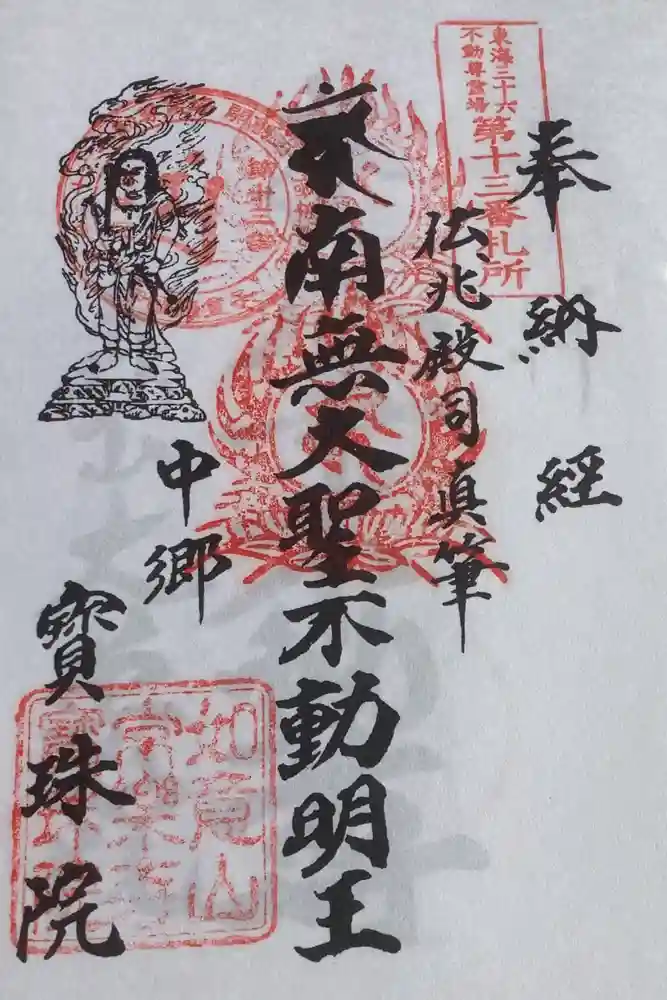 東海三十六
不動尊霊場
第十三番札所
奉納経
仏兆殿司真筆
南無大聖不動明王
中郷
寳珠院
如意山
常楽寺
寳珠院